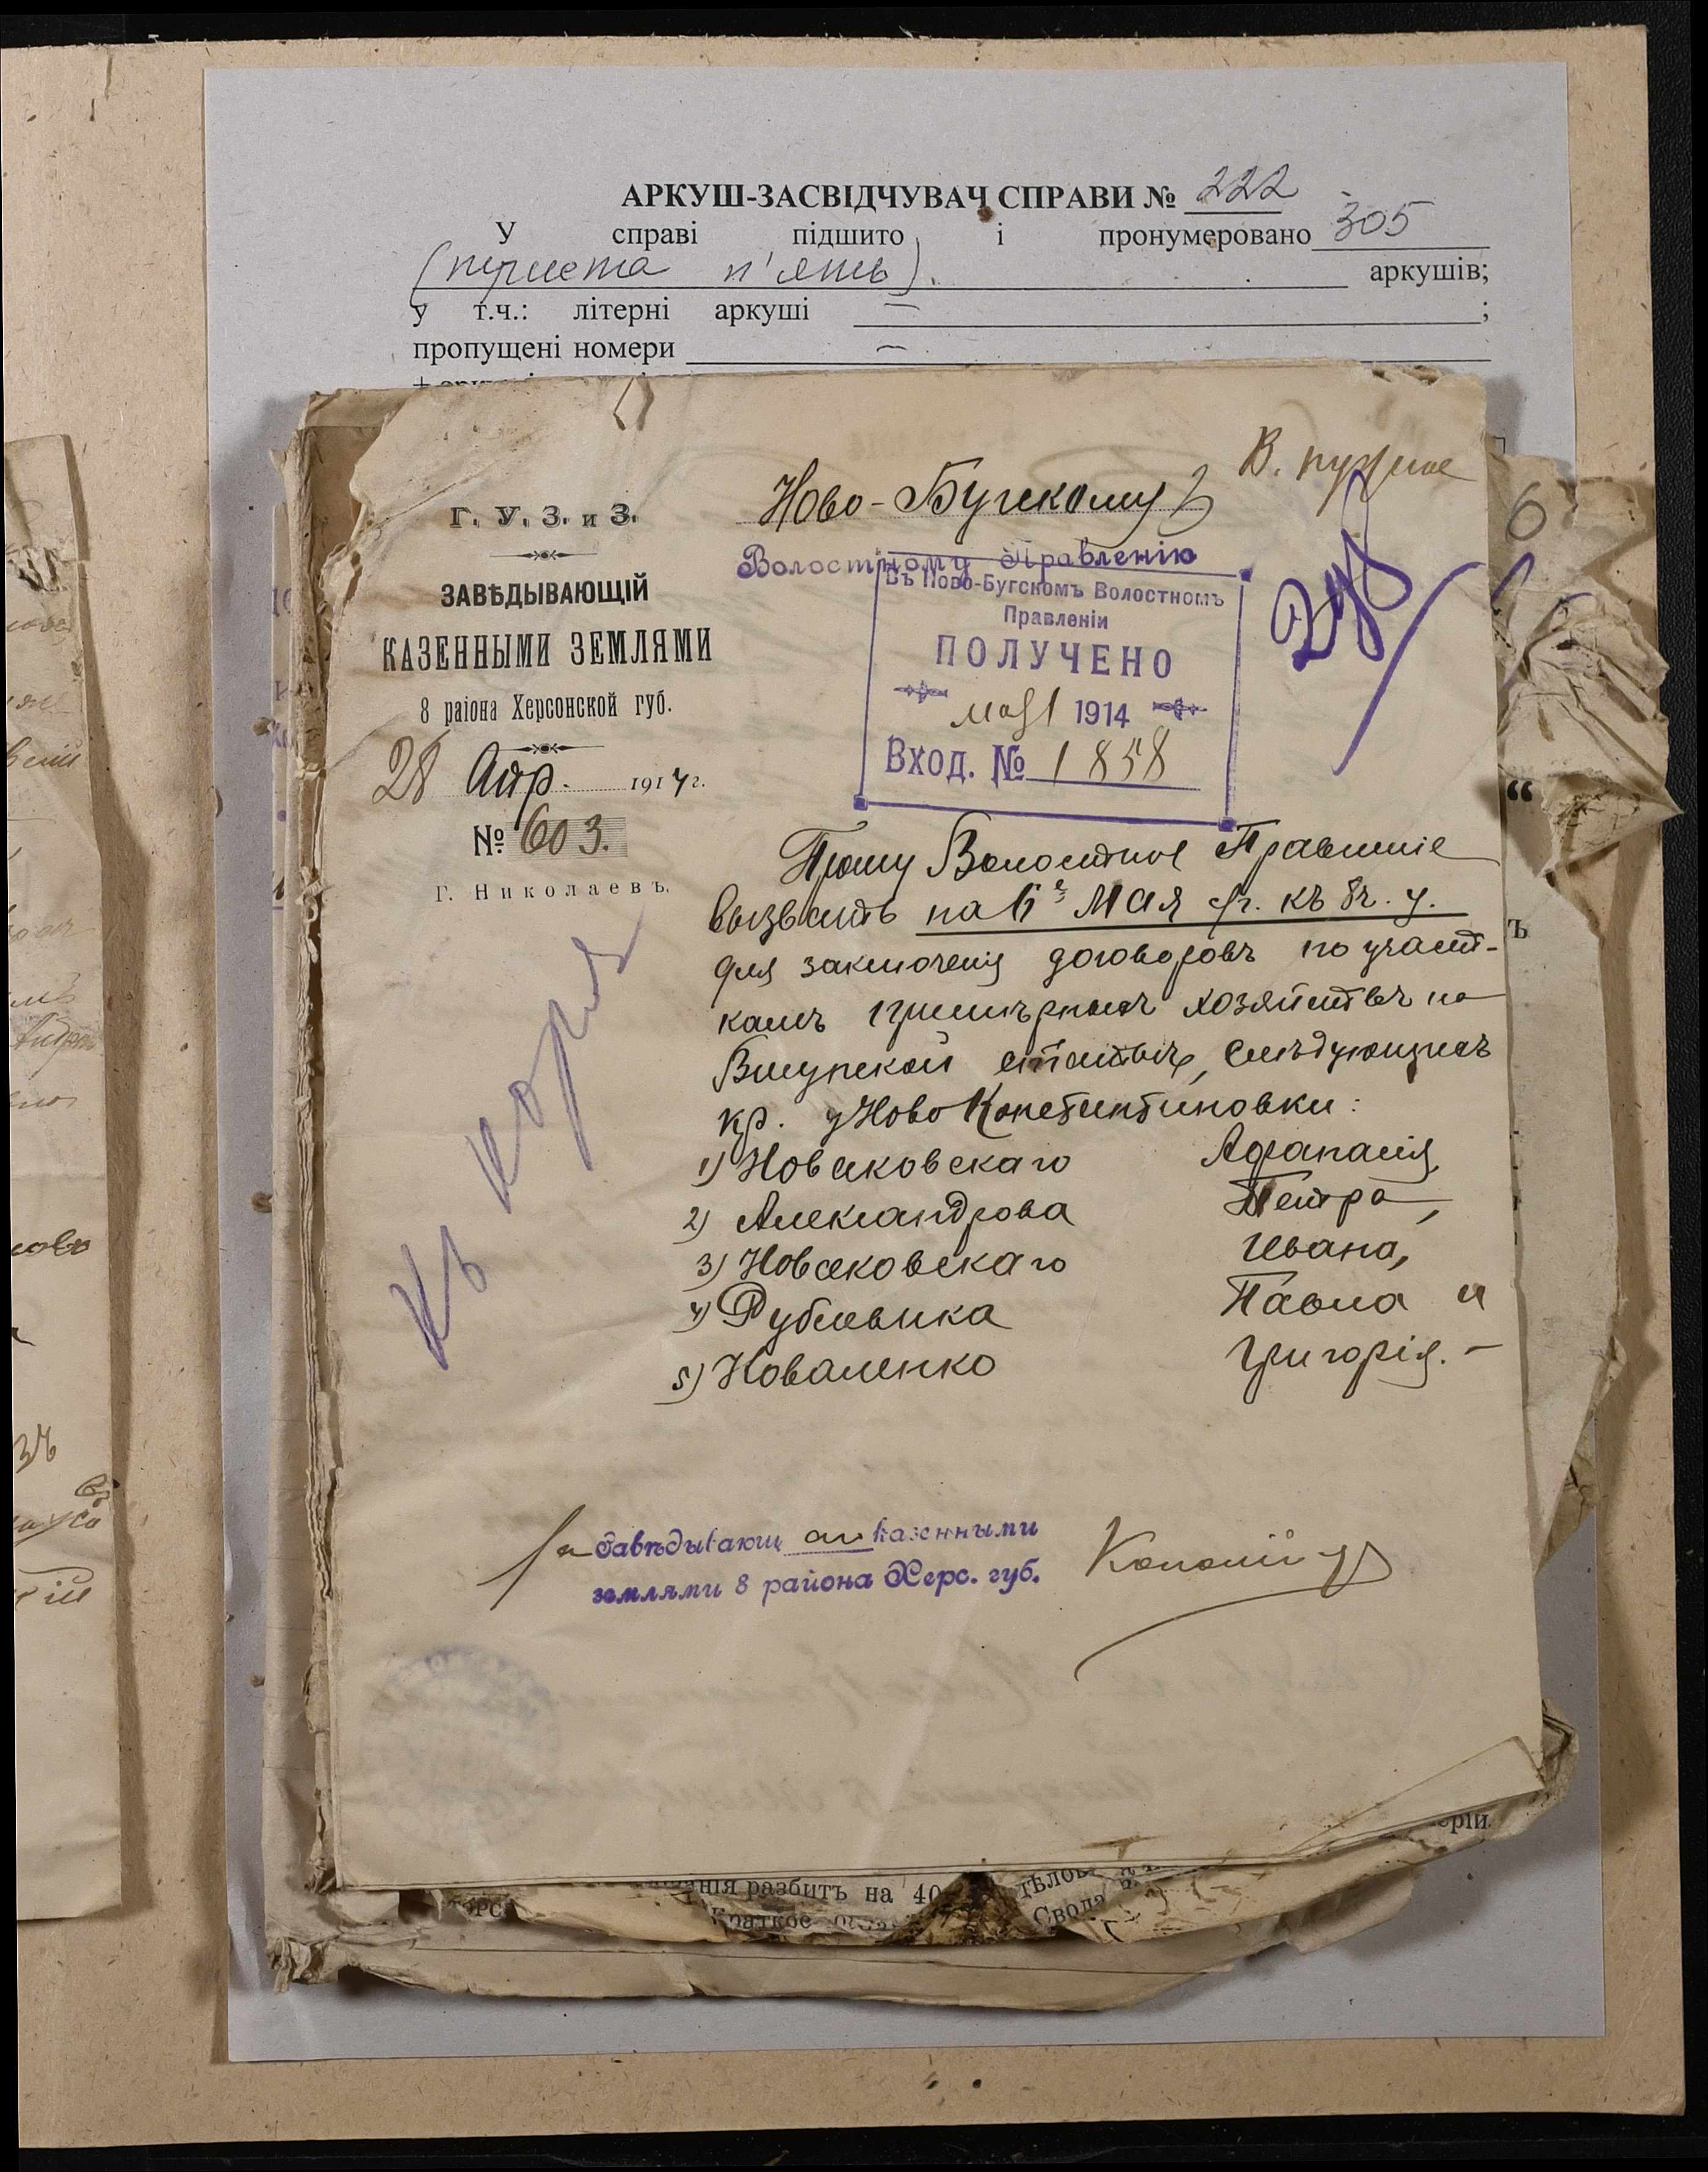 АРКУШ-ЗАСВІДЧУВАЧ СПРАВИ № 222
У справі підшито і пронумеровано 305
(триста п'ять). аркушів;
у т.ч.: літерні аркуші — ;
пропущені номери —
Г. У. З. и З.
ЗАВѢДЫВАЮЩІЙ
КАЗЕННЫМИ ЗЕМЛЯМИ
8 раіона Херсонской губ.
28 Апр. 1914 г.
№ 603.
Г. Николаевъ.
Ново-Бугскому
Волостному Правленію
Въ Ново-Бугскомъ Волостномъ
Правленіи
ПОЛУЧЕНО
мая 1 1914
Вход. № 1858
6
Прошу Волостное Правленіе
вызвать на 6е Мая с/г. къ 8 ч. у.
для заключенія договоровъ по участ-
камъ примѣрныхъ хозяйствъ на
статьи, слѣдующихъ
кр. Ново Константиновки:
1) Новаковскаго Афанасія,
2) Александрова Петра,
3) Новаковскаго Ивана,
4) Рублевика Павла и
5) Коваленко Григорія. —
За Завѣдывающ аго казенными
землями 8 района Херс. губ.
“
ъ
анія разбитъ на 40
Краткое
тѣлов
Свода
оріи